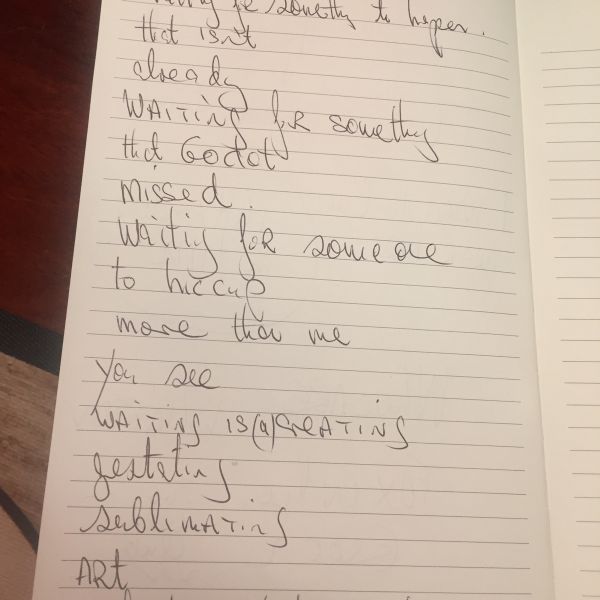 for something to happen.
that isn't
already
WAITING foR something
that Godot
missed.
waiting foR someone
to hiccup
more than me
you see
WAITING IS (a) CREATING
gestating
sublimATING
ARt